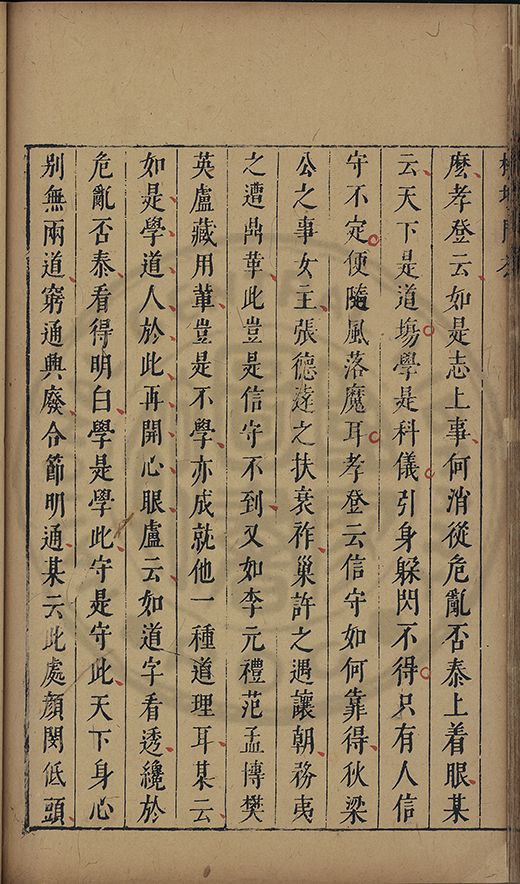 麽孝登云如是志上事何消從危亂否泰上着眼某
云天下是道塲學是科儀引身躱閃不得只有人信
守不定便隨風落魔耳孝登云信守如何靠得狄梁
公之事女主張德遠之扶衰祚巢許之遇讓朝務夷
之遭鼎革此豈是信守不到又如李元禮范孟博樊
英盧藏用輩豈是不學亦成就他一種道理耳某云
如是學道人於此再開心眼盧云如道字看透纔於
危亂否泰看得明白學是學此守是守此天下身心
別無兩道窮通興廢合節明通某云此處顏閔低頭